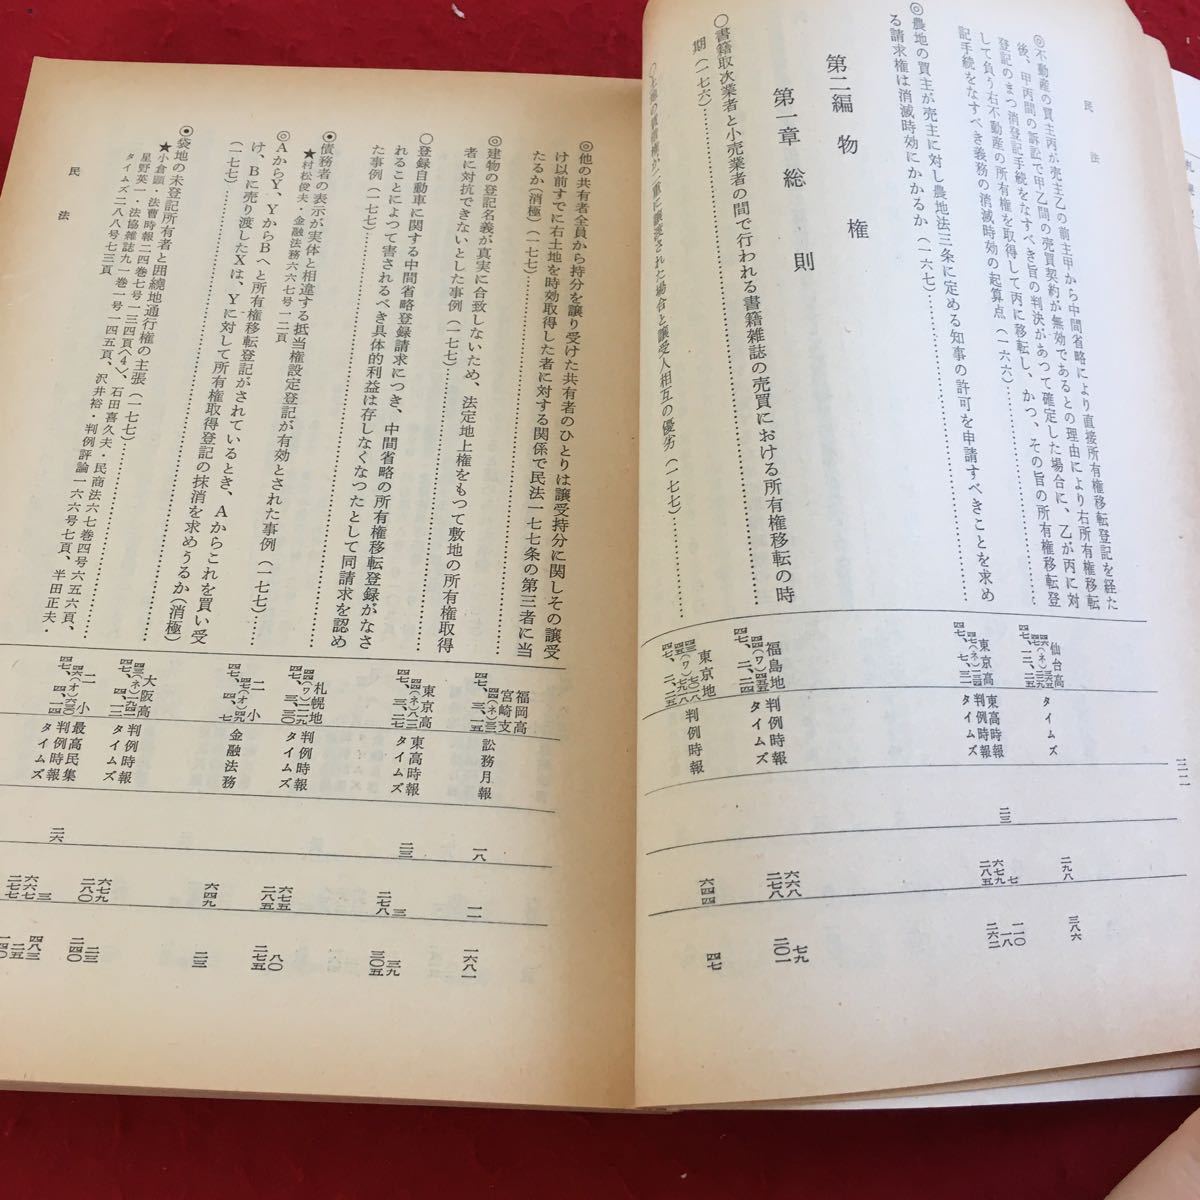 民法
三二
◎不動産の買主丙が売主乙の前主甲から中間省略により直接所有権移転登記を経た
後、甲丙間の訴訟で甲乙間の売買契約が無効であるとの理由により右所有権移転
登記のまつ消登記手続をなすべき旨の判決があつて確定した場合に、乙が丙に対
して負う右不動産の所有権を取得して丙に移転し、かつ、その旨の所有権移転登
記手続をなすべき義務の消滅時効の起算点(一六六)
仙台高
タイムズ
二九八
三八六
◎農地の買主が売主に対し農地法三条に定める知事の許可を申請すべきことを求め
る請求権は消滅時効にかかるか(一六七)
東京高
東高時報
判例時報
タイムズ
二三
七
六七九
二八五
一二〇
一八
二六二
第二編 物権
第一章 総則
○書籍取次業者と小売業者の間で行われる書籍雑誌の売買における所有権移転の時
期(一七六)
福島地
判例時報
タイムズ
六六八
二七八
七九
二〇一
東京地
判例時報
六四四
四七
◎他の共有者全員から持分を譲り受けた共有者のひとりは譲受持分に関しその譲受
け以前すでに右土地を時効取得した者に対する関係で民法一七七条の第三者に当
たるか(消極)(一七七)
福岡高
宮崎支
訟務月報
一八
一一
一六八一
◎建物の登記名義が真実に合致しないため、法定地上権をもつて敷地の所有権取得
者に対抗できないとした事例(一七七)
東京高
東高時報
タイムズ
二三
三
二七八
三九
三〇五
○登録自動車に関する中間省略登録請求につき、中間省略の所有権移転登録がなさ
れることによつて害されるべき具体的利益は存しなくなつたとして同請求を認め
た事例(一七七)
札幌地
判例時報
タイムズ
六七五
二八五
八〇
二七五
◉債務者の表示が実体と相違する抵当権設定登記が有効とされた事例(一七七)
★村松俊夫・金融法務六六七号一二頁
二小
金融法務
六四九
二三
◎AからY、YからBへと所有権移転登記がされているとき、Aからこれを買い受
け、Bに売り渡したXは、Yに対して所有権取得登記の抹消を求めうるか(消極)
(一七七)
大阪高
判例時報
タイムズ
六七九
二八〇
二三
二四〇
◉袋地の未登記所有者と囲繞地通行権の主張(一七七)
★小倉顕・法曹時報二四巻七号一三四頁〈4〉、石田喜久夫・民商法六七巻四号六五六頁、
星野英一・法協雑誌九一巻一号一四五頁、沢井裕・判例評論一六六号七頁、半田正夫・
タイムズ二八八号七三頁
二小
最高民集
判例時報
タイムズ
二六
三
六六七
二七七
四八三
二五
一四〇
民法